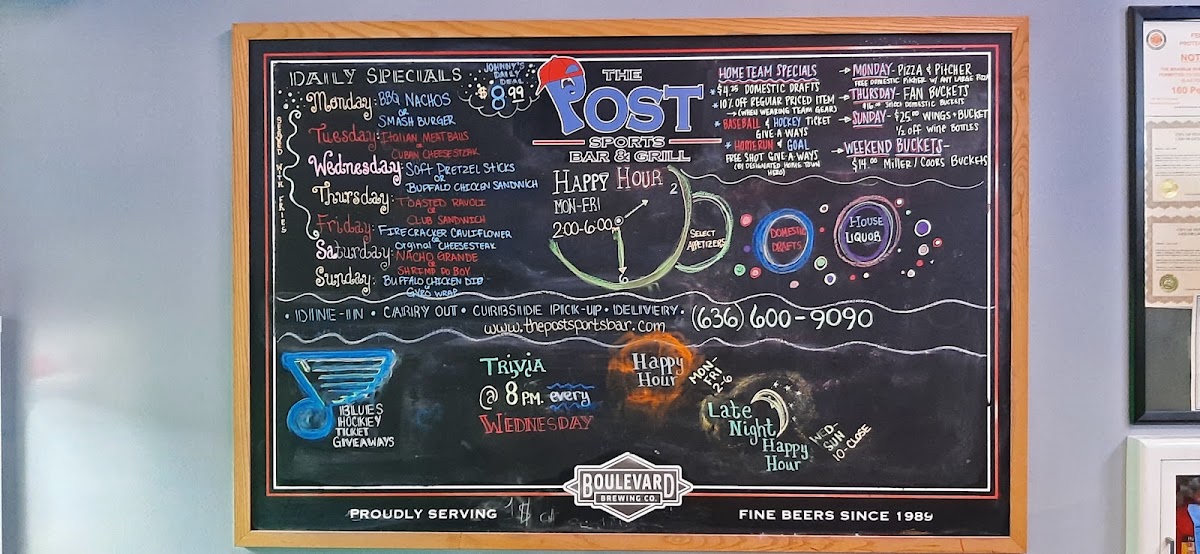 DAILY SPECIALS
JOHNNY'S
DAILY
DEAL
$8.99
Monday: BBQ NACHOS
OR
SMASH BURGER
Tuesday: ITALIAN MEATBALLS
OR
CUBAN CHEESESTEAK
Wednesday: SOFT PRETZEL STICKS
OR
BUFFALO CHICKEN SANDWICH
Thursday: TOASTED RAVOLI
OR
CLUB SANDWICH
Friday: FIRECRACKER CAULIFLOWER
OR
ORGINAL CHEESESTEAK
Saturday: NACHO GRANDE
OR
SHRIMP PO BOY
Sunday: BUFFALO CHICKEN DIP
OR
GYRO WRAP
SERVED WITH FRIES
THE
POST
SPORTS
BAR & GRILL
HAPPY HOUR
MON-FRI
2:00-6:00
2
6
SELECT
APPETIZERS
DOMESTIC
DRAFTS
HOUSE
LIQUOR
HOME TEAM SPECIALS
* $4.25 DOMESTIC DRAFTS
* 10% OFF REGULAR PRICED ITEM
→ (WHEN WEARING TEAM GEAR)
* BASEBALL & HOCKEY TICKET
GIVE-A-WAYS
* HOMERUN & GOAL
FREE SHOT GIVE-A-WAYS
(BY DESIGNATED HOME TOWN
HERO)
→ MONDAY- PIZZA & PITCHER
FREE DOMESTIC PITCHER W/ ANY LARGE PIZZA
→ THURSDAY- FAN BUCKETS
$16.00 SELECT DOMESTIC BUCKETS
→ SUNDAY- $25.00 WINGS + BUCKET
1/2 OFF WINE BOTTLES
WEEKEND BUCKETS-
→ $14.00 MILLER/COORS BUCKETS
• DINE-IN • CARRY OUT • CURBSIDE PICK-UP • DELIVERY •
www.thepostsportsbar.com
(636) 600-9090
BLUES
HOCKEY
TICKET
GIVEAWAYS
TRIVIA
@ 8 PM. every
WEDNESDAY
Happy
Hour
MON-
FRI
2-6
Late
Night
Happy
Hour
WED-
SUN
10-CLOSE
BOULEVARD
BREWING CO.
PROUDLY SERVING
FINE BEERS SINCE 1989